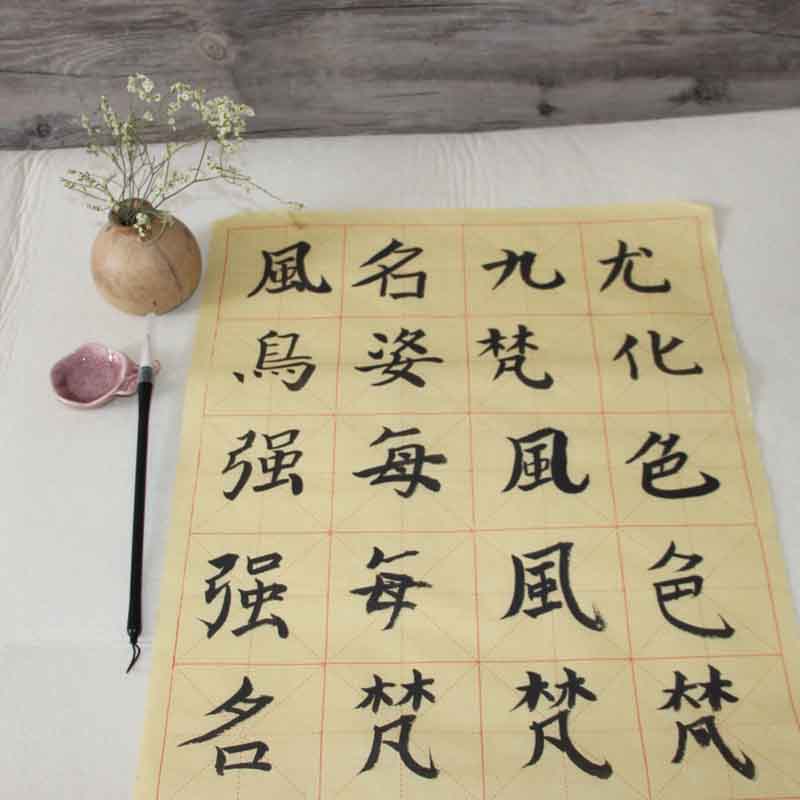 風名九尤
鳥姿梵化
强每風色
强每風色
名梵梵梵